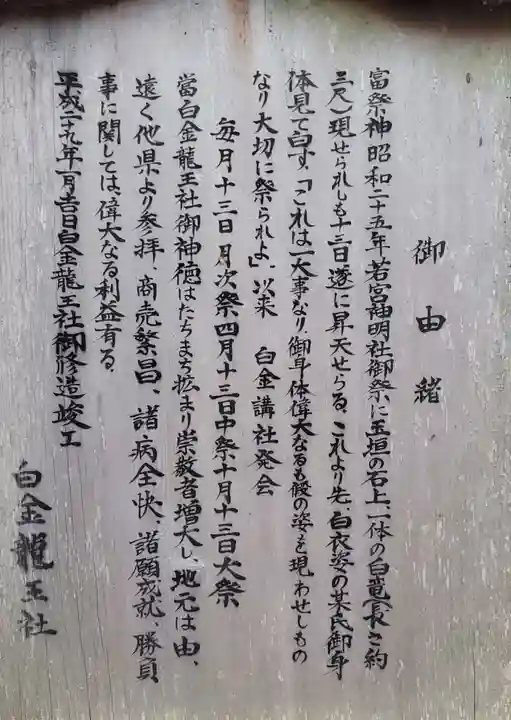 御由緒
富祭神昭和二十五年若宮神明社御祭に玉垣の石上、一体の白竜(長さ約
三尺)現せられしも十三日遂に昇天せらる、これより先、白衣姿の某氏御身
体見て白す、「これは一大事なり、御身体偉大なるも假の姿を現わせしもの
なり大切に祭られよ」、以来 白金講社発会
毎月十三日月次祭四月十三日中祭十月十三日大祭
當白金龍王社御神徳はたちまち拡まり崇敬者増大し、地元は由、
遠く他県より参拝、商売繁昌、諸病全快、諸願成就、勝負
事に関しては、偉大なる利益有る、
平成二十九年一月吉日白金龍王社御修造竣工
白金龍王社